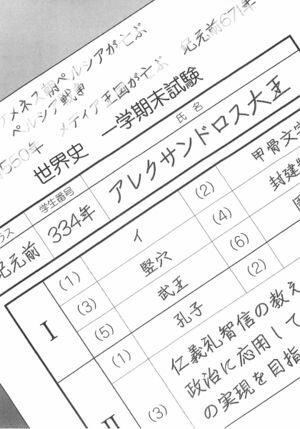 ケメネス朝ペルシアが亡ぶ
ペルシア戦争
550年 メディア王国が亡ぶ 紀元前671年
世界史 一学期末試験
ラス 学生番号 氏名
紀元前 334年 アレクサンドロス大王
I (1) イ (2) 甲骨文
(3) 竪穴 (4) 封建
(5) 武王 (6)
II (1) 孔子 (2)
(3) 仁義礼智信の教え
政治に応用して
の実現を目指